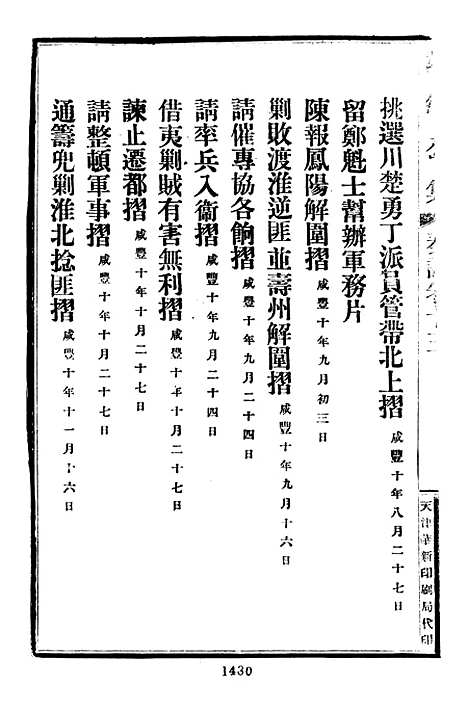 挑選川楚勇丁派員管帶北上摺 咸豐十年八月二十七日
留鄭魁士幫辦軍務片
陳報鳳陽解圍摺 咸豐十年九月初三日
剿敗渡淮逆匪並壽州解圍摺 咸豐十年九月十六日
請催專協各餉摺 咸豐十年九月二十四日
請率兵入衞摺 咸豐十年九月二十四日
借夷剿賊有害無利摺 咸豐十年十月二十七日
諫止遷都摺 咸豐十年十月二十七日
請整頓軍事摺 咸豐十年十月二十七日
通籌兜剿淮北捻匪摺 咸豐十年十一月十六日
天津華新印刷局代印
1430